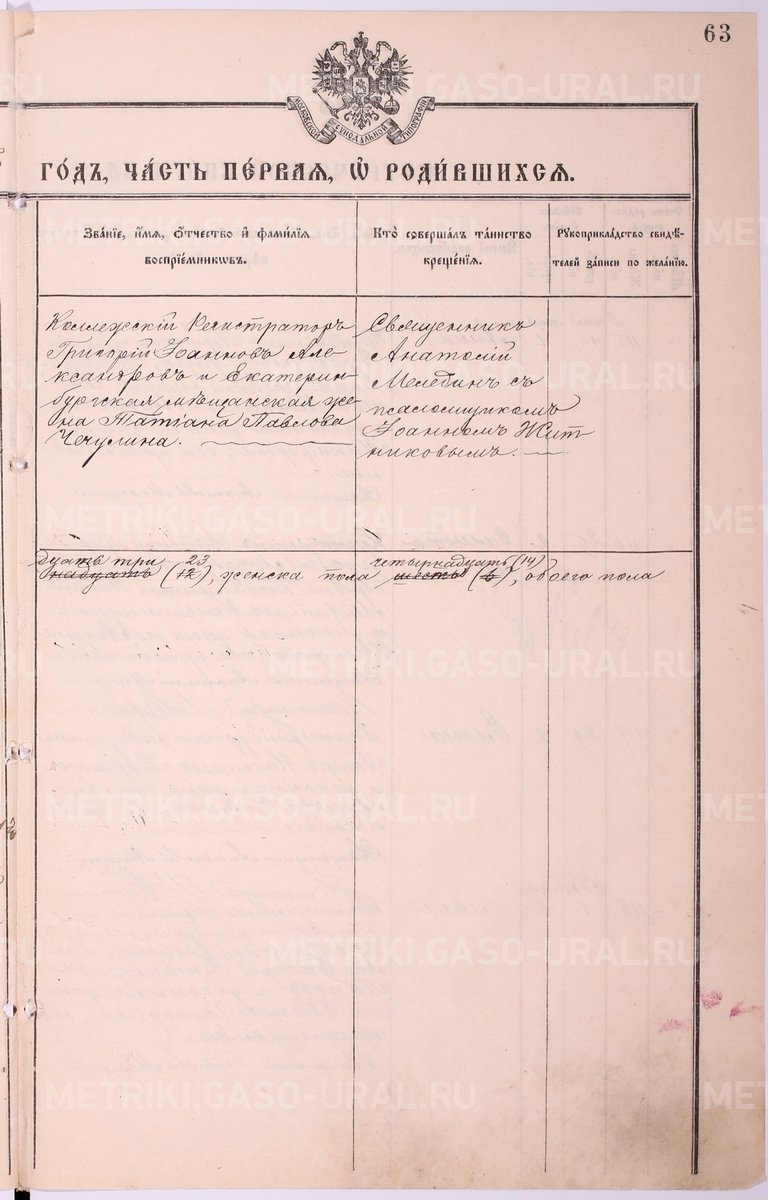 63
МОСКОВСКОЙ СѴНОДАЛЬНОЙ ТИПОГРАФІИ
ГО́ДЪ, ЧА́СТЬ ПЕ́РВАЯ, Ѽ РОДИ́ВШИХСЯ.
Зва́нїе, и҆́мя, ѻ҆́тчество и҆ фами́лїя
воспрїе́мникѡвъ.
Кто̀ соверша́лъ та́инство
креще́нїя.
Рꙋкоприкла́дство свидѣ́-
телей за́писи по жела́нїю.
Коллежскій Регистраторъ
Григорій Іоанновъ Але-
ксандровъ и Екатерин-
бургская мѣщанская же-
на Татіана Павлова
Чечулина.
Священникъ
Анатолій
Мелебинъ съ
псаломщикомъ
Іоанномъ Жит
никовымъ.
дцать три 23 четырнадцать (14)
надцать (12), женска пола шесть (6), обоего пола
METRIKI.GASO-URAL.RU